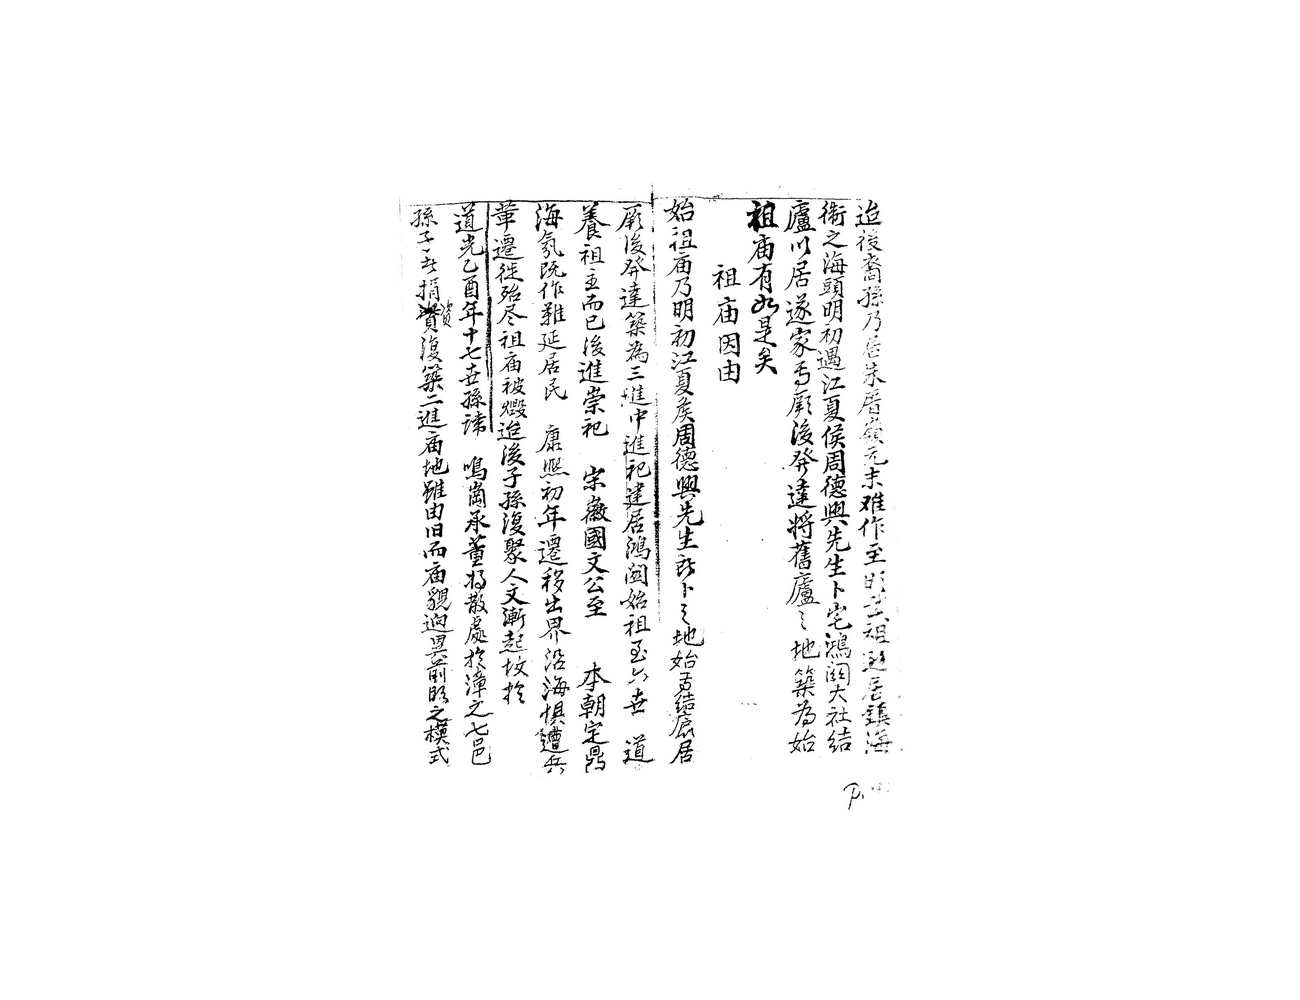 迨後裔孫乃居朱厝嶺元末难作至明共祖避居鎮海
衛之海頭明初遇江夏侯周德興先生卜宅鴻湖大社結
廬以居遂家焉厥後發達將舊廬之地築為始
祖庙有如是矣
祖庙因由
始祖庙乃明初江夏侯周德興先生所卜之地始焉結廬居
厥後發達築為三進中進祀建居鴻湖始祖至六世道
養祖主而已後進崇祀 宗徽國文公至 本朝定鼎
海氛既作難延居民 康熙初年遷移出界沿海惧遭兵
革遷徙殆尽祖庙被燬迨後子孫復聚人文漸起坟於
道光乙酉年十七世孫諱 鳴崗承董将散處於漳之七邑
孫子之捐資復築二進庙地雖由旧而庙貌迥異前時之模式